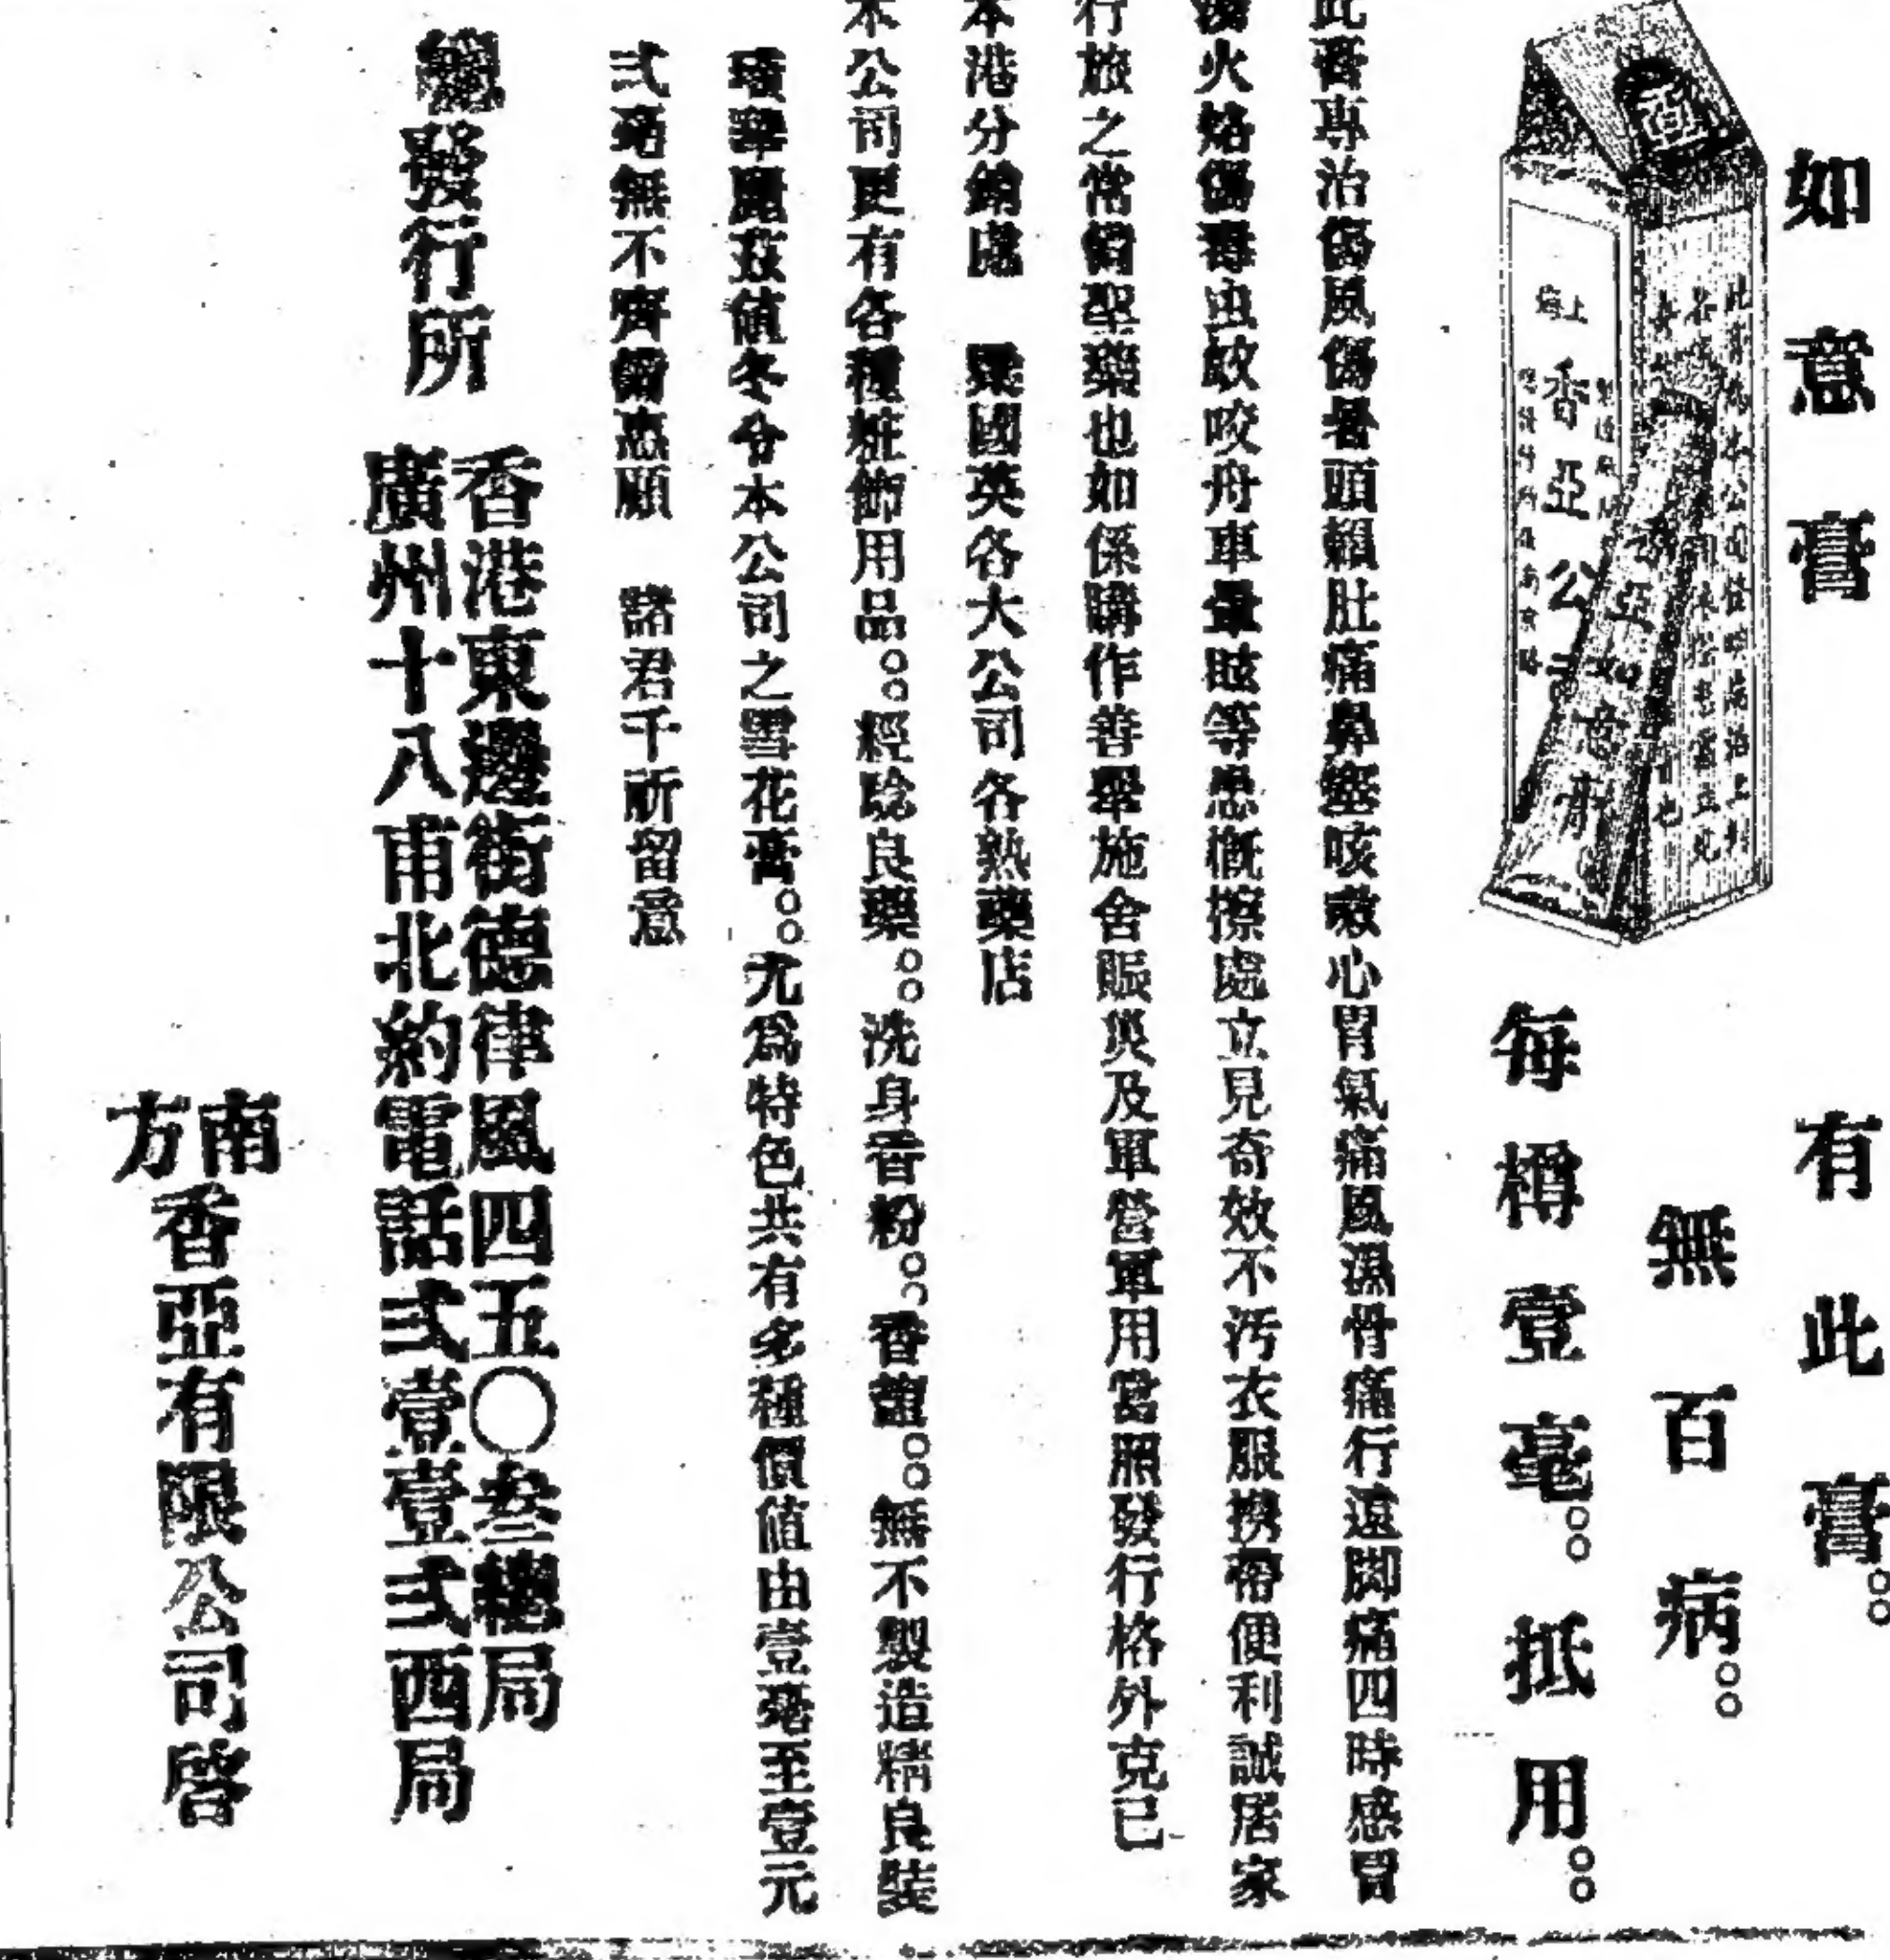 如意膏
有此膏。
無百病。
每樽壹毫。抵用。
上海
香亞公司
此膏專治傷風傷暑頭賴肚痛鼻塞咳嗽心胃氣痛風濕骨痛行遠脚痛四時感冒
湯火烙傷毒虫蚊咬舟車暈眩等患概擦處立見奇效不汚衣服携帶便利誠居家
行旅之常備聖藥也如係購作善舉施舍賑災及軍營軍用當照發行格外克已
本港分銷處 梁國英各大公司各熟藥店
本公司更有各種粧飾用品。經騐良藥。洗身香粉。香鹼。無不製造精良裝
璜華麗茲値冬令本公司之雪花膏。尤爲特色共有多種價值由壹毫至壹元
弍毫無不齊備惠顧 諸君千祈留意
總發行所
香港東邊街德律風四五〇叁總局
廣州十八甫北約電話弍壹壹弍西局
南方香亞有限公司啓